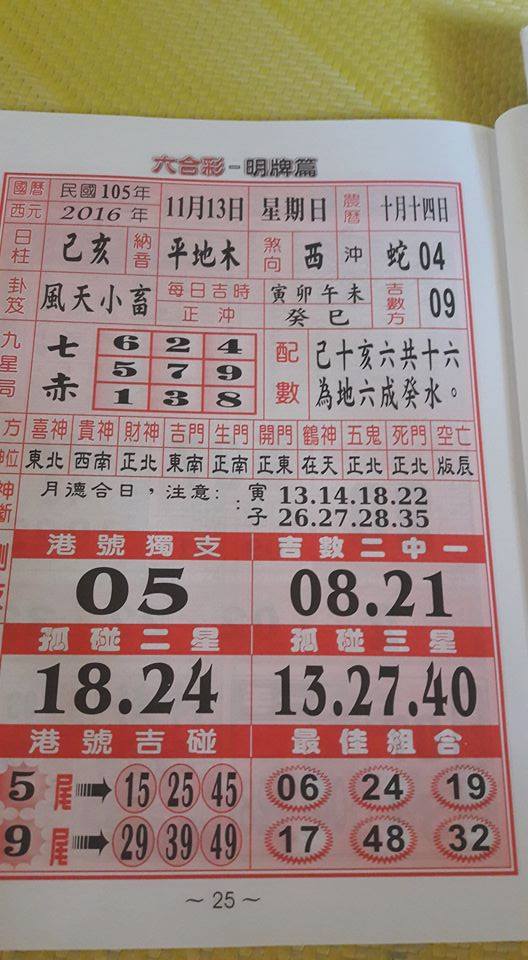 六合彩-明牌篇
國曆 民國105年 11月13日 星期日 農曆 十月十四日
西元 2016年
日柱 己亥 納音 平地木 煞向 西 沖 蛇04
卦笈 風天小畜 每日吉時 寅卯午未 吉數方 09
正沖 癸巳
九星局 七赤 配數
6 2 4
5 7 9
1 3 8
己十亥六共十六
為地六成癸水。
方 喜神 貴神 財神 吉門 生門 開門 鶴神 五鬼 死門 空亡
位 東北 西南 正北 東南 正南 正東 在天 正北 正北 版辰
神斷 月德合日，注意：寅 13.14.18.22
：子 26.27.28.35
港號獨支 吉數二中一
05 08.21
孤碰二星 孤碰三星
18.24 13.27.40
港號吉碰 最佳組合
5尾 15 25 45 06 24 19
9尾 29 39 49 17 48 32
～25～